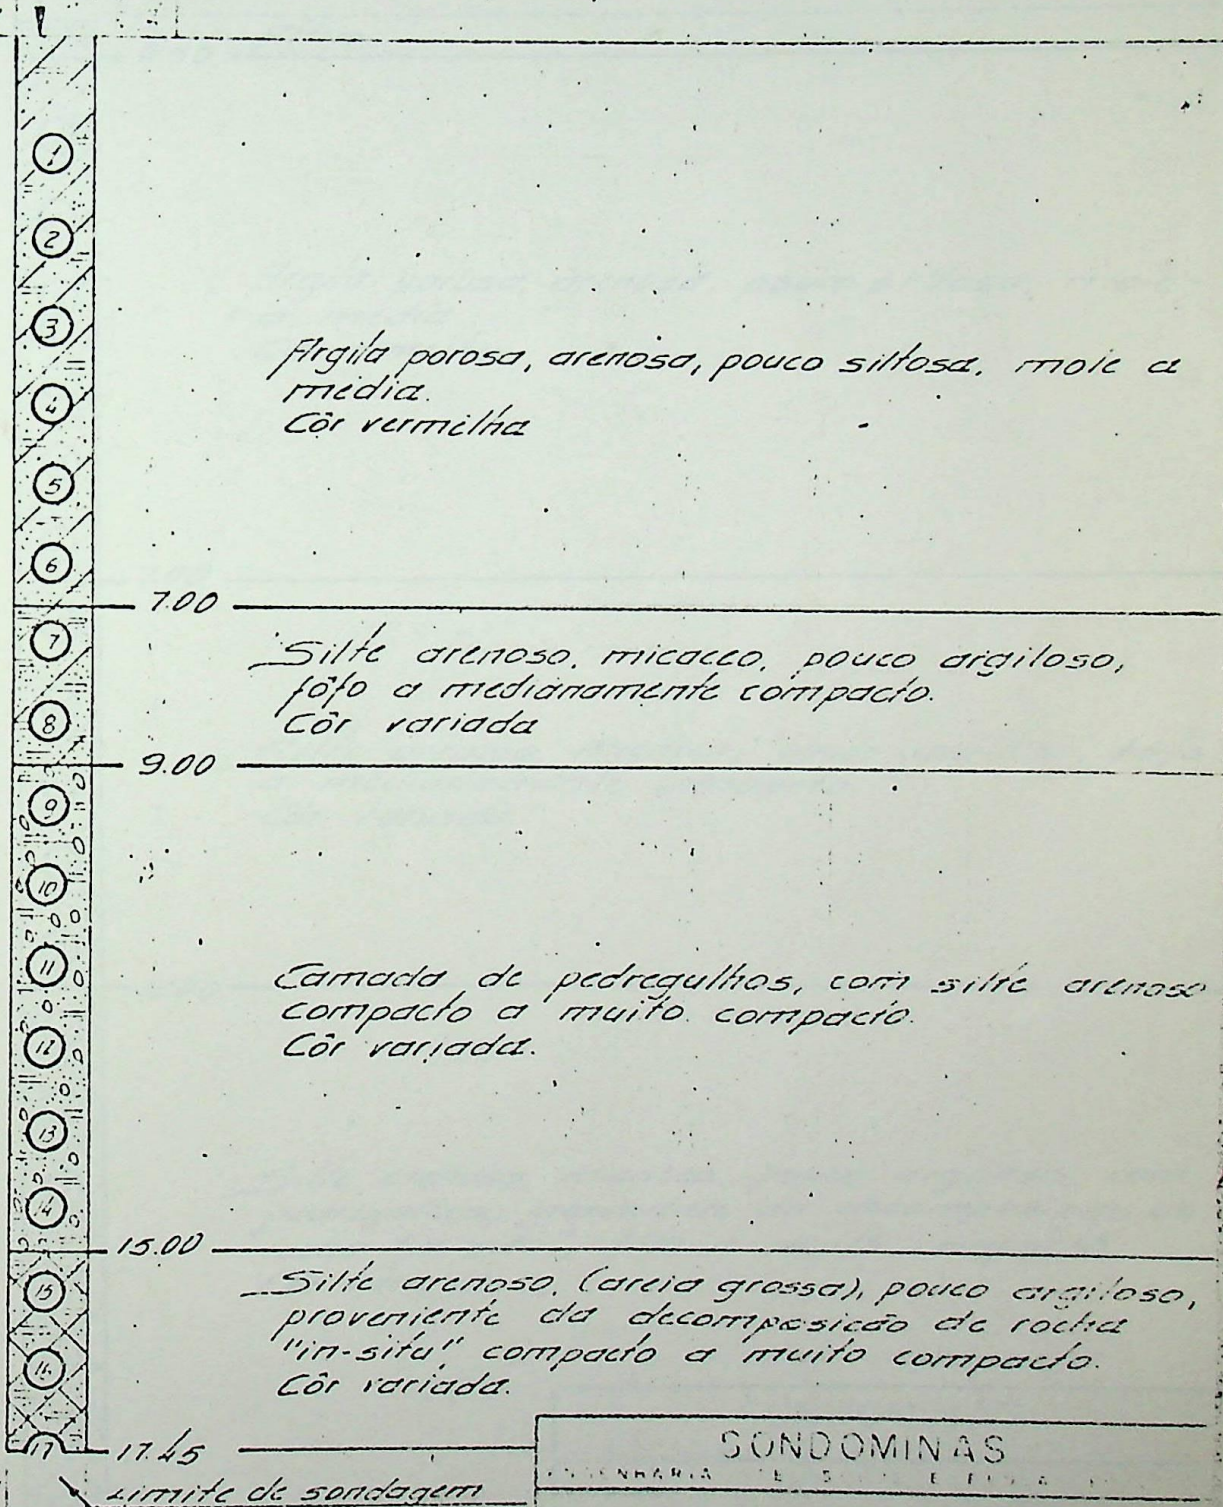 1
2
3
Argila porosa, arenosa, pouco siltosa, mole a
média.
4
Côr vermelha
5
6
7.00
7
Silte arenoso, micaceo, pouco argiloso,
fôfo a medianamente compacto.
8
Côr variada
9.00
9
10
11
Camada de pedregulhos, com silte arenoso
compacto a muito compacto.
12
Côr variada.
13
14
15.00
15
Silte arenoso, (areia grossa), pouco argiloso,
proveniente da decomposicão de rocha
"in-situ", compacto a muito compacto.
16
Côr variada.
17
17.45
SONDOMINAS
Limite de sondagem